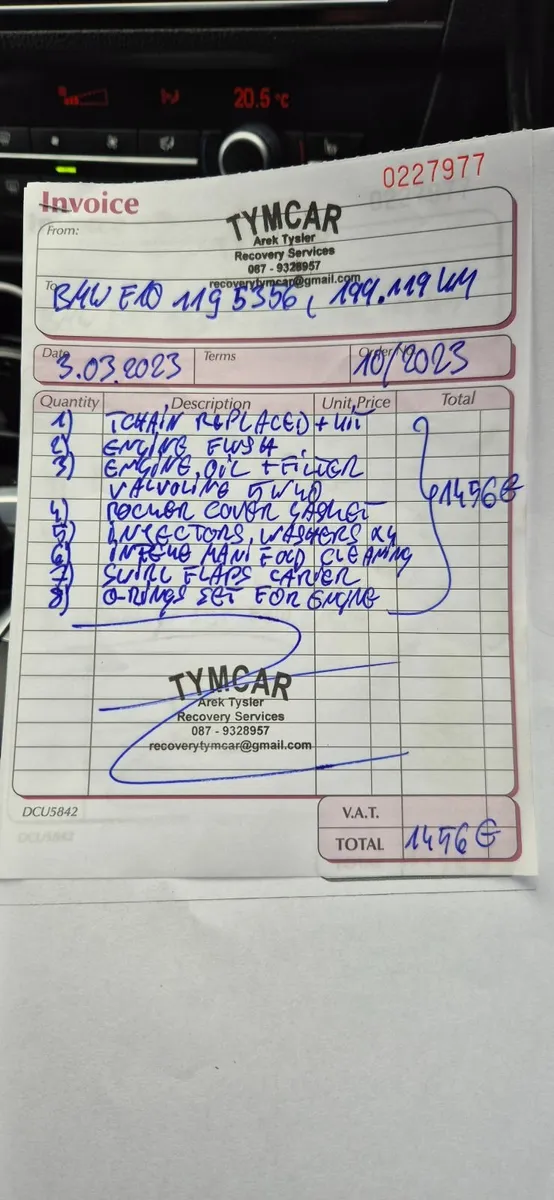 20.5 °C
0227977
Invoice
From:
TYMCAR
Arek Tysler
Recovery Services
087 - 9328957
recoverytymcar@gmail.com
To
BMW F10 119 5356, 199.119 KM
Date
3.03.2023
Terms
Order No.
10/2023
Quantity Description Unit Price Total
1) TCHAIN REPLACED + KIT
2) ENGINE FLUSH
3) ENGINE OIL + FILTER
VALVOLINE 5W40
1456€
4) ROCKER COVER GASKET
5) INJECTORS, WASHERS x4
6) INTEKE MANIFOLD CLEANING
7) SWIRL FLAPS CARIER
8) O-RINGS SET FOR ENGINE
TYMCAR
Arek Tysler
Recovery Services
087 - 9328957
recoverytymcar@gmail.com
DCU5842
V.A.T.
TOTAL 1456€